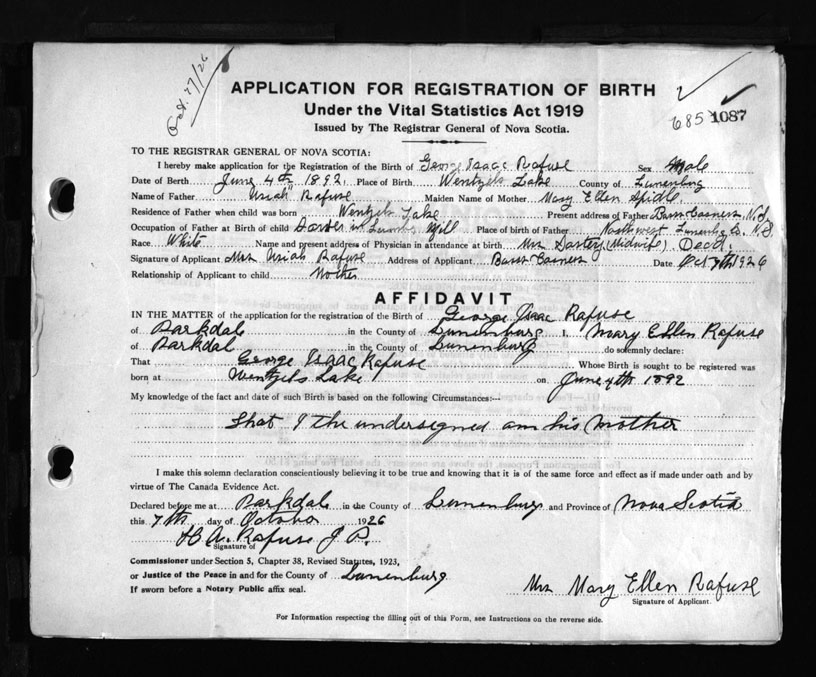 APPLICATION FOR REGISTRATION OF BIRTH
Under the Vital Statistics Act 1919
Issued by The Registrar General of Nova Scotia.
685 1087
TO THE REGISTRAR GENERAL OF NOVA SCOTIA:
I hereby make application for the Registration of the Birth of George Isaac Rafuse Sex Male
Date of Birth June 4th 1892. Place of Birth Wentzels Lake County of Lunenburg
Name of Father "Usiah" Rafuse Maiden Name of Mother Mary Ellen Spidle
Residence of Father when child was born Wentzels Lake Present address of Father Barss Corners, N.S.
Occupation of Father at Birth of child in Mill Place of birth of Father Northwest Lunenbg Co. N.S
Race White Name and present address of Physician in attendance at birth Mrs (Midwife) Decd.
Signature of Applicant Mrs Usiah Rafuse Address of Applicant Barss Corners Date Oct 7th 1926
Relationship of Applicant to child Mother
AFFIDAVIT
IN THE MATTER of the application for the registration of the Birth of George Isaac Rafuse
of Parkdale in the County of Lunenburg I, Mary Ellen Rafuse
of Parkdale in the County of Lunenburg do solemnly declare:
That George Isaac Rafuse Whose Birth is sought to be registered was
born at Wentzels Lake on June 4th 1892
My knowledge of the fact and date of such Birth is based on the following Circumstances:—
That I the undersigned am his Mother
I make this solemn declaration conscientiously believing it to be true and knowing that it is of the same force and effect as if made under oath and by
virtue of The Canada Evidence Act.
Declared before me at Parkdale in the County of Lunenburg and Province of Nova Scotia
this 7th day of October 1926
H. A. Rafuse J. P.
Signature of
Commissioner under Section 5, Chapter 38, Revised Statutes, 1923,
or Justice of the Peace in and for the County of Lunenburg
If sworn before a Notary Public affix seal.
Mrs Mary Ellen Rafuse
Signature of Applicant.
For Information respecting the filling out of this Form, see Instructions on the reverse side.